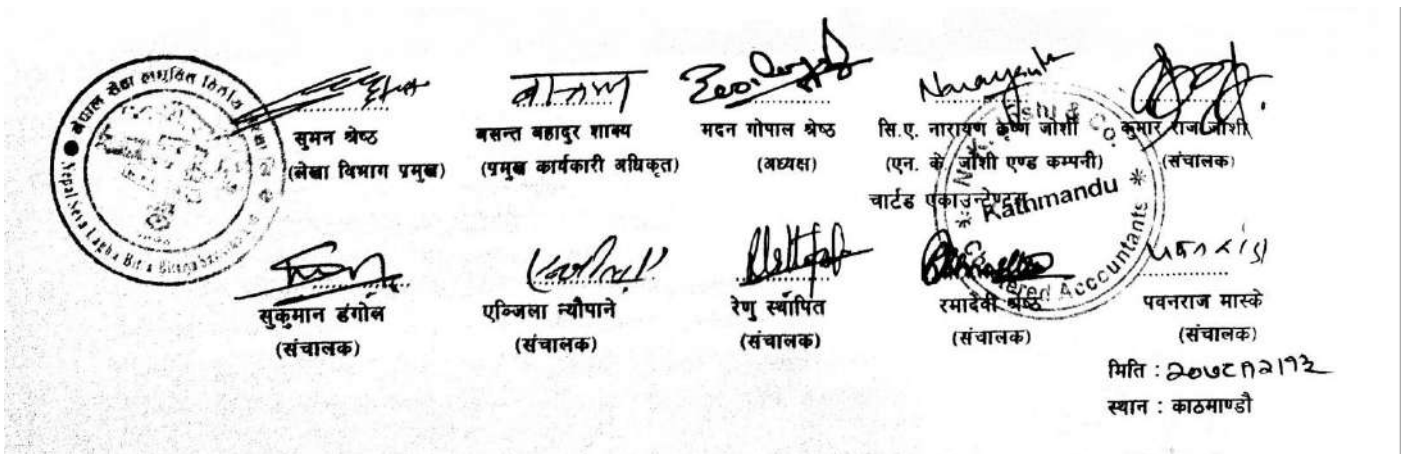 सुमन श्रेष्ठ
(लेखा विभाग प्रमुख)
बसन्त बहादुर शाक्य
(प्रमुख कार्यकारी अधिकृत)
मदन गोपाल श्रेष्ठ
(अध्यक्ष)
सि.ए. नारायण कृष्ण जोशी
(एन. के. जोशी एण्ड कम्पनी)
चार्टड एकाउन्टेण्ट्स
कुमार राज जोशी
(संचालक)
सुकुमान डंगोल
(संचालक)
एञ्जिला न्यौपाने
(संचालक)
रेणु स्थापित
(संचालक)
रमादेवी श्रेष्ठ
(संचालक)
पवनराज मास्के
(संचालक)
मिति :
स्थान : काठमाण्डौ
Kathmandu
Chartered Accountants
Nepal Sewa Laghu Bitta